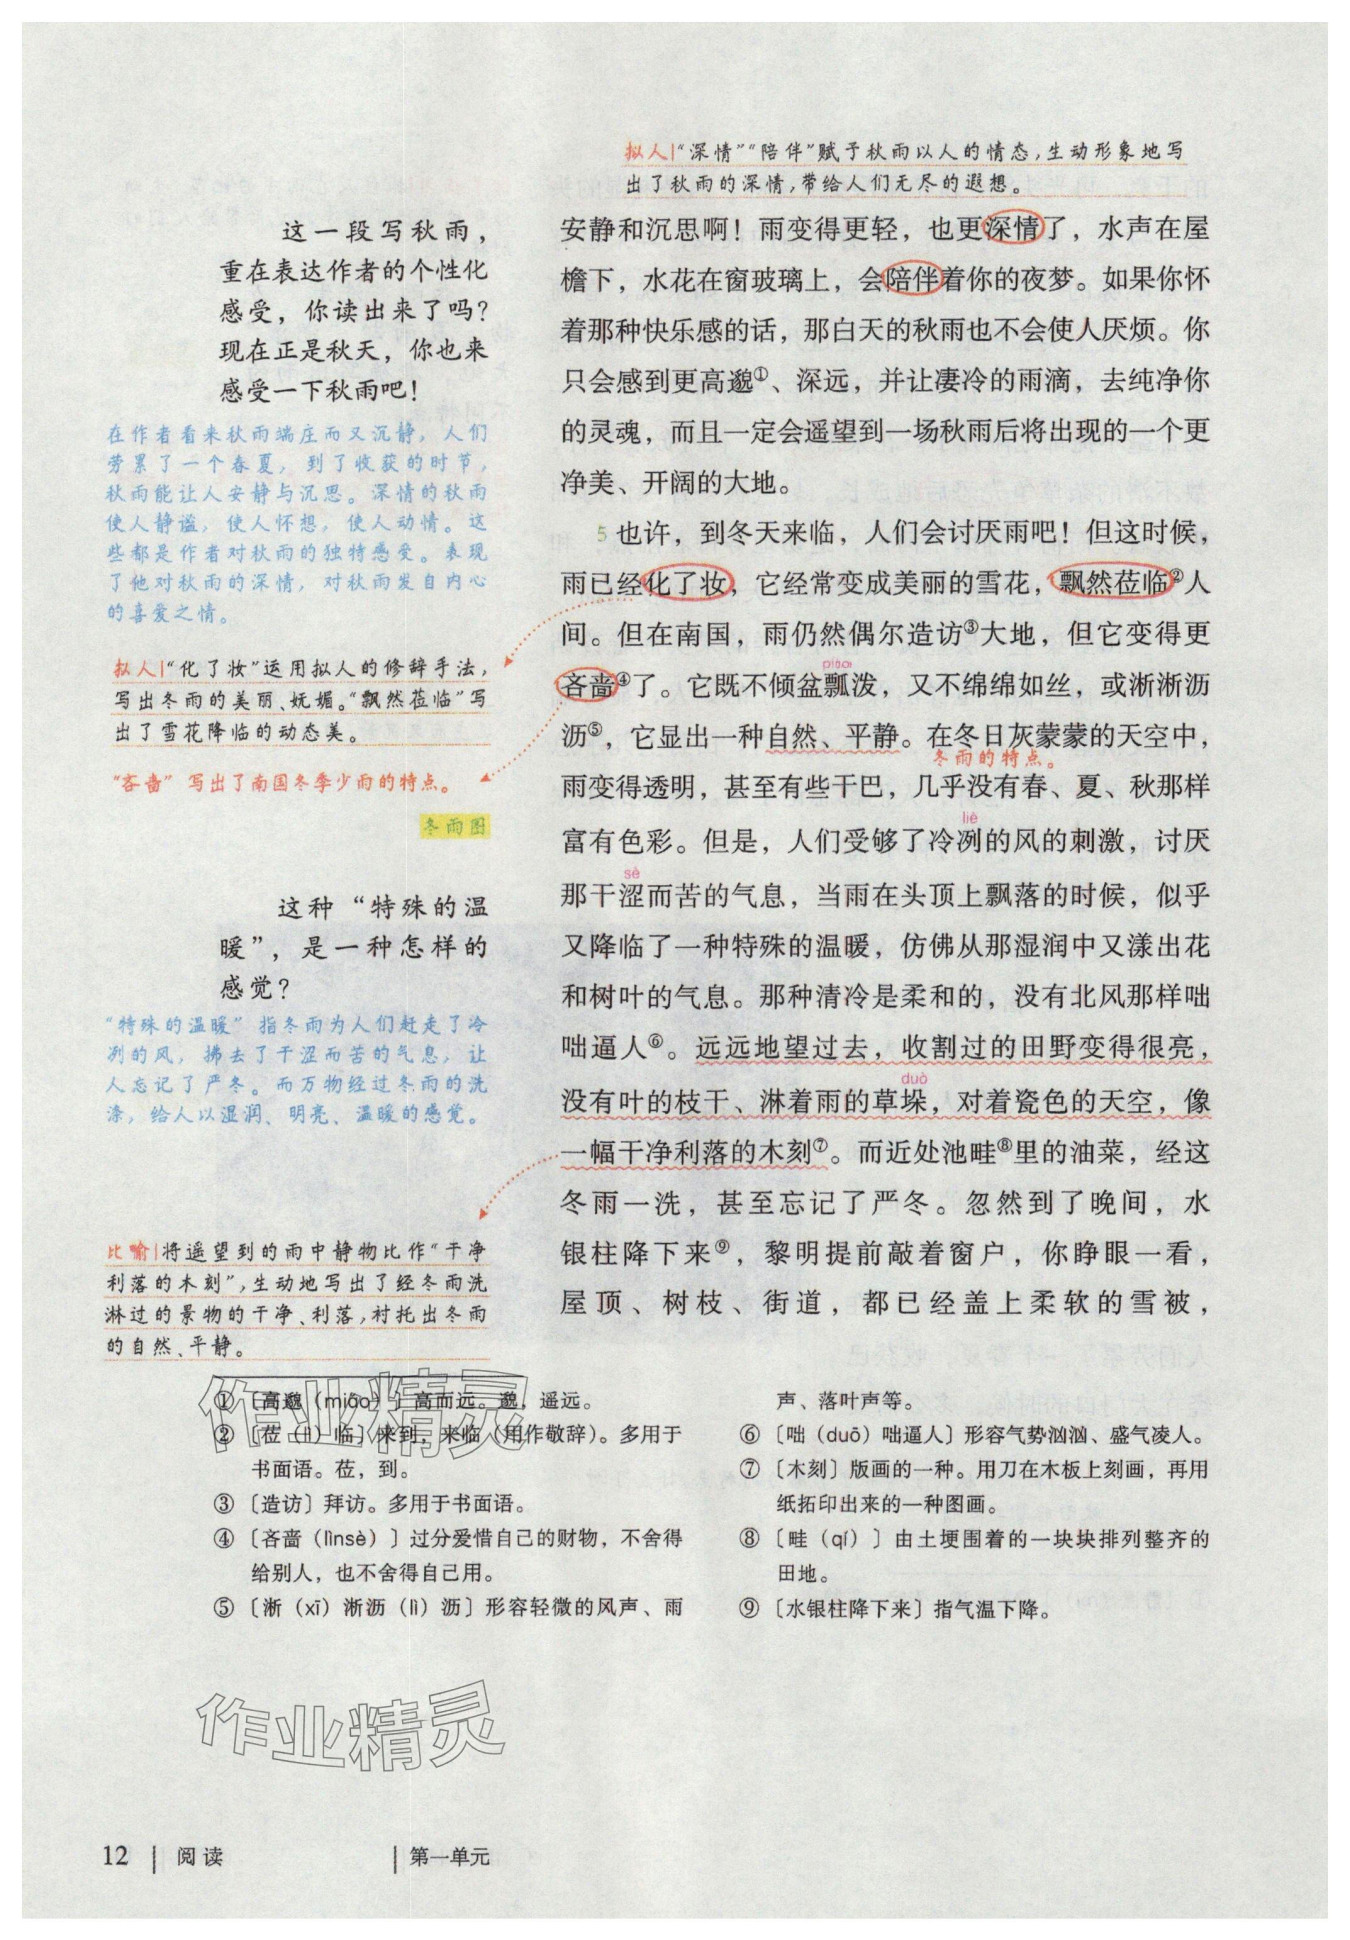 拟人|“深情”“陪伴”赋予秋雨以人的情态,生动形象地写
出了秋雨的深情,带给人们无尽的遐想。
安静和沉思啊！雨变得更轻，也更深情了，水声在屋
檐下，水花在窗玻璃上，会陪伴着你的夜梦。如果你怀
着那种快乐感的话，那白天的秋雨也不会使人厌烦。你
只会感到更高邈①、深远，并让凄冷的雨滴，去纯净你
的灵魂，而且一定会遥望到一场秋雨后将出现的一个更
净美、开阔的大地。
这一段写秋雨，
重在表达作者的个性化
感受，你读出来了吗？
现在正是秋天，你也来
感受一下秋雨吧！
在作者看来秋雨端庄而又沉静，人们
劳累了一个春夏，到了收获的时节，
秋雨能让人安静与沉思。深情的秋雨
使人静谧，使人怀想，使人动情。这
些都是作者对秋雨的独特感受。表现
了他对秋雨的深情，对秋雨发自内心
的喜爱之情。
5 也许，到冬天来临，人们会讨厌雨吧！但这时候，
雨已经化了妆，它经常变成美丽的雪花，飘然莅临②人
间。但在南国，雨仍然偶尔造访③大地，但它变得更
piáo
吝啬④了。它既不倾盆瓢泼，又不绵绵如丝，或淅淅沥
沥⑤，它显出一种自然、平静。在冬日灰蒙蒙的天空中，
冬雨的特点。
雨变得透明，甚至有些干巴，几乎没有春、夏、秋那样
liè
富有色彩。但是，人们受够了冷冽的风的刺激，讨厌
sè
那干涩而苦的气息，当雨在头顶上飘落的时候，似乎
又降临了一种特殊的温暖，仿佛从那湿润中又漾出花
和树叶的气息。那种清冷是柔和的，没有北风那样咄
咄逼人⑥。远远地望过去，收割过的田野变得很亮，
duò
没有叶的枝干、淋着雨的草垛，对着瓷色的天空，像
一幅干净利落的木刻⑦。而近处池畦⑧里的油菜，经这
冬雨一洗，甚至忘记了严冬。忽然到了晚间，水
银柱降下来⑨，黎明提前敲着窗户，你睁眼一看，
屋顶、树枝、街道，都已经盖上柔软的雪被，
拟人|“化了妆”运用拟人的修辞手法,
写出冬雨的美丽、妩媚。“飘然莅临”写
出了雪花降临的动态美。
“吝啬”写出了南国冬季少雨的特点。
冬雨图
这种“特殊的温
暖”，是一种怎样的
感觉？
“特殊的温暖”指冬雨为人们赶走了冷
冽的风，拂去了干涩而苦的气息，让
人忘记了严冬。而万物经过冬雨的洗
涤，给人以湿润、明亮、温暖的感觉。
比喻|将遥望到的雨中静物比作“干净
利落的木刻”,生动地写出了经冬雨洗
淋过的景物的干净、利落,衬托出冬雨
的自然、平静。
①〔高邈（miǎo）〕高而远。邈，遥远。
②〔莅（lì）临〕来到，来临（用作敬辞）。多用于
书面语。莅，到。
③〔造访〕拜访。多用于书面语。
④〔吝啬（lìnsè）〕过分爱惜自己的财物，不舍得
给别人，也不舍得自己用。
⑤〔淅（xī）淅沥（lì）沥〕形容轻微的风声、雨
声、落叶声等。
⑥〔咄（duō）咄逼人〕形容气势汹汹、盛气凌人。
⑦〔木刻〕版画的一种。用刀在木板上刻画，再用
纸拓印出来的一种图画。
⑧〔畦（qí）〕由土埂围着的一块块排列整齐的
田地。
⑨〔水银柱降下来〕指气温下降。
作业精灵
作业精灵
12 | 阅读 | 第一单元